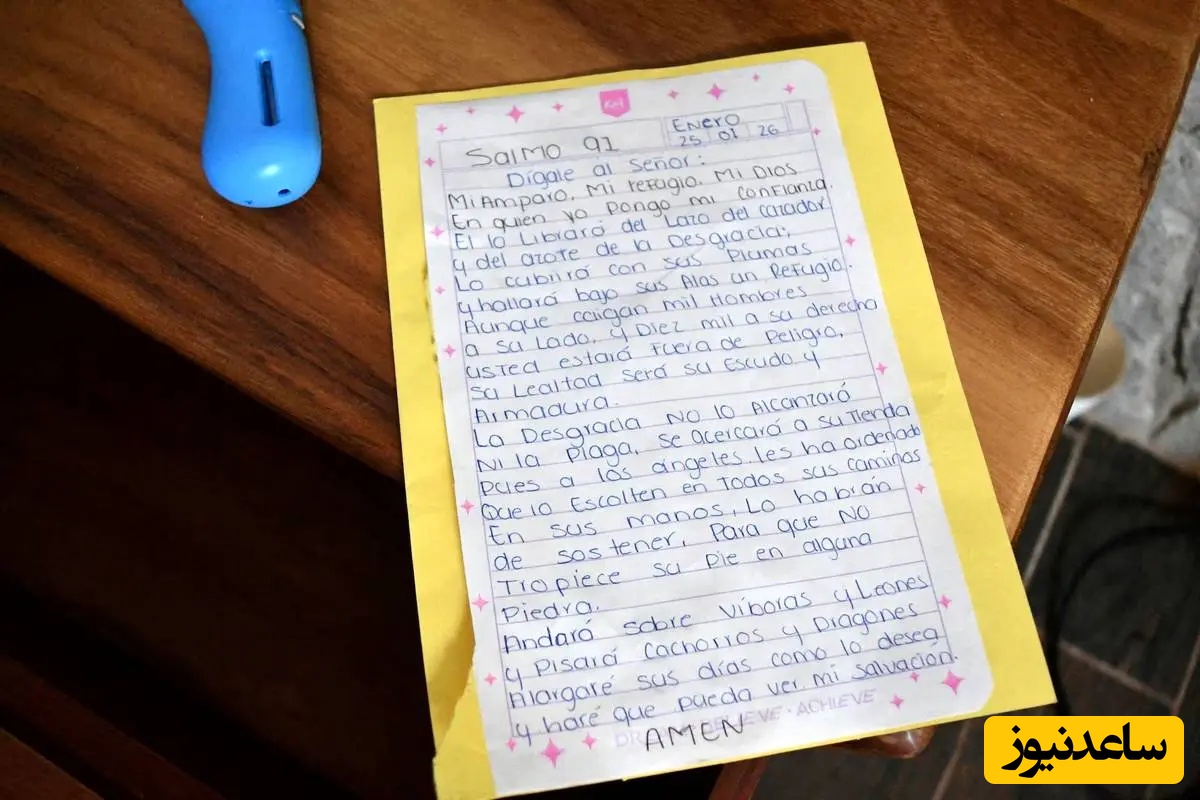 KM
Salmo 91
Enero
25 01 26
Dígale al Señor:
Mi Amparo, Mi refugio, Mi Dios
En quien yo pongo mi confianza.
El lo Librará del Lazo del cazador
y del azote de la Desgracia;
Lo cubrirá con sus Plumas
y hallará bajo sus Alas un Refugio.
Aunque caigan mil Hombres
a su Lado, y Diez mil a su derecha
usted estará Fuera de Peligro,
su Lealtad será su Escudo y
Armadura.
La Desgracia NO lo Alcanzará
Ni la Plaga, se acercará a su Tienda
pues a los ángeles les ha ordenado
Que lo Escolten en Todos sus caminos
En sus manos, Lo habrán
de sostener, Para que NO
Tropiece su Pie en alguna
Piedra.
Andará sobre Víboras y Leones
y pisará Cachorros y Dragones
Alargaré sus días como lo desea
y haré que pueda ver mi salvación.
EVE · ACHIEVE
AMEN
ساعدنیوز